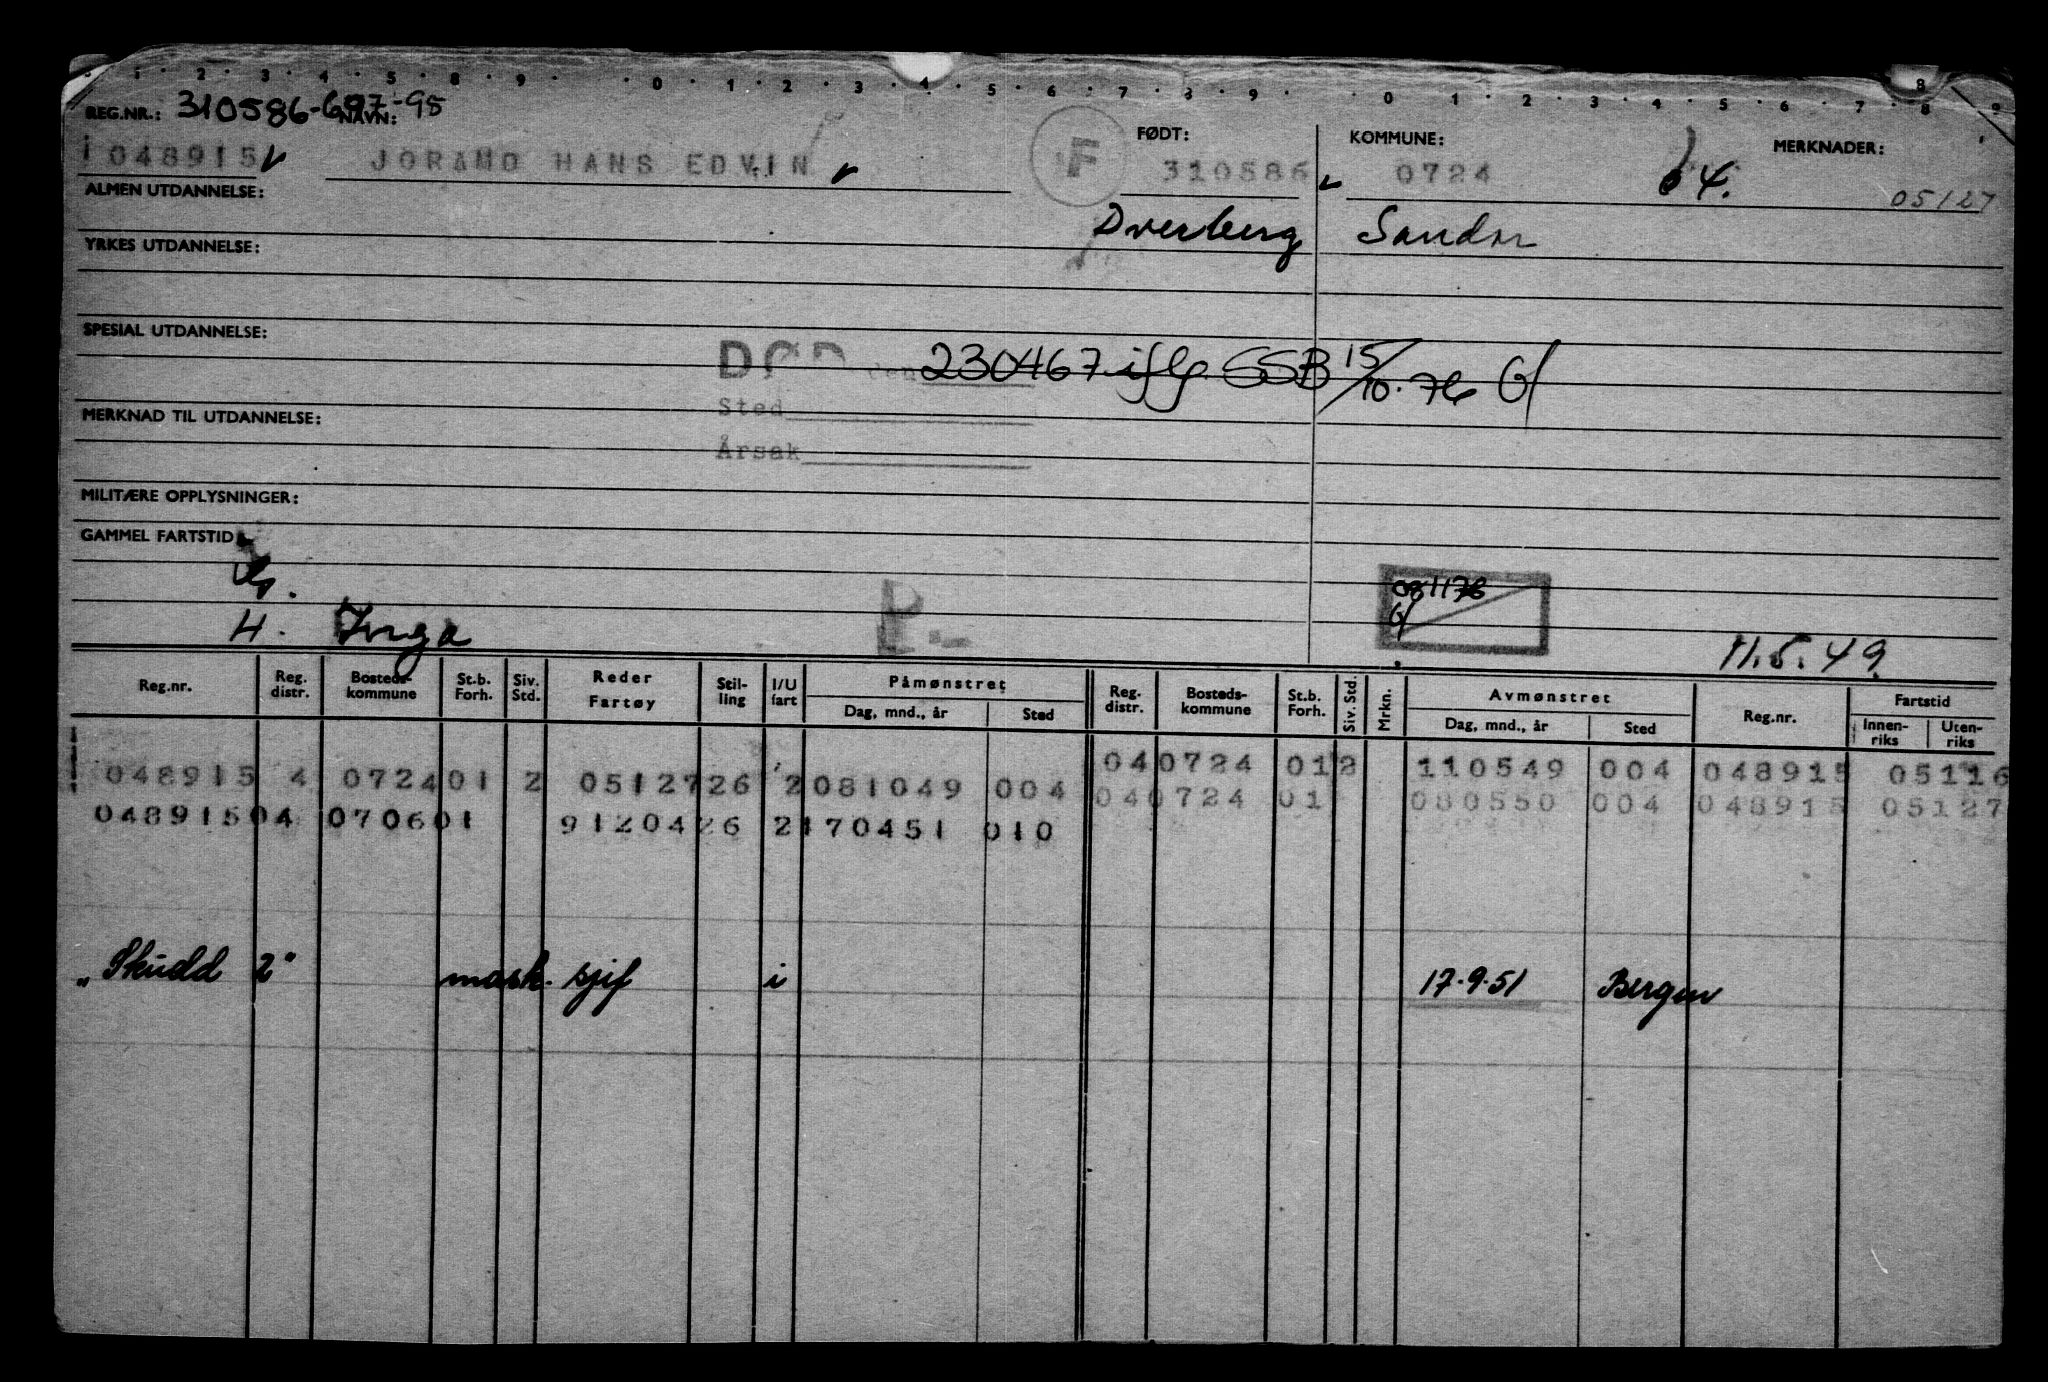 1 · 2 · 3 · 4 · 5 · 8 · 9 · 0 · 1 · 2 · 3 · 4 · 5 · 6 · 7 · 8 · 9 · 0 · 1 · 2 · 3 · 4 · 5 · 6 · 7 · 8 · 9
REG.NR.: 310586-697-95 NAVN: FØDT: KOMMUNE: MERKNADER:
i 048915 JORAND HANS EDVIN F 310586 0724 64. 05127
ALMEN UTDANNELSE: Dverberg Sandar
YRKES UTDANNELSE:
SPESIAL UTDANNELSE:
DØD den 230467 iflg. SSB 15/10.76 G/
Sted
MERKNAD TIL UTDANNELSE:
Årsak
MILITÆRE OPPLYSNINGER:
GAMMEL FARTSTID
081176
G/
H. Inga P.- 11.5.49
Reg.nr. Reg. distr. Bosteds-kommune St.b. Forh. Siv. Std. Reder Fartøy Stil-ling I/U fart Påmønstret Dag, mnd., år Sted Reg. distr. Bosteds-kommune St.b. Forh. Siv. Std. Mrkn. Avmønstret Dag, mnd., år Sted Reg.nr. Fartstid Innen-riks Uten-riks
048915 4 0724 01 2 05127 26 2 081049 004 04 0724 01 2 110549 004 048915 05116
04 0724 01 080550 004 048915 05127
048915 04 0706 01 91204 26 2 170451 010
„Skudd 2" mask. sjef i 17.9.51 Bergen